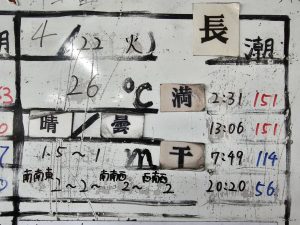 4/22 火 長潮
26℃ 満 2:31 151
晴/曇 13:06 151
1.5~1m 干 7:49 114
南南東 2~2~ 南南西 2~ 西南西 2 20:20 56